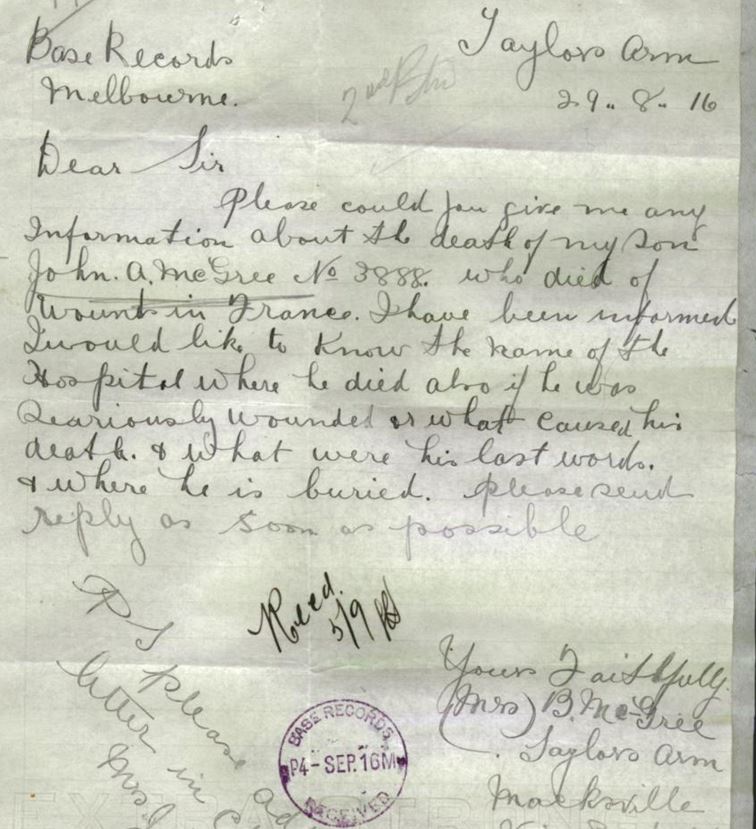 Taylors Arm
Base Records
Melbourne.
29.. 8.. 16
Dear Sir
Please could you give me any
Information about the death of my Son
John. A. McGree No 3888. who died of
wounds in France. I have been informed
I would like to Know the name of the
Hospital where he died also if he was
Seariously wounded or what caused his
death. & what were his last words.
& where he is buried. please send
reply as soon as possible
Recd.
5/9
Yours Faithfully
(Mrs) B. McGree
Taylors Arm
Macksville
P S please
letter in
BASE RECORDS
P4-SEP.16M
RECEIVED